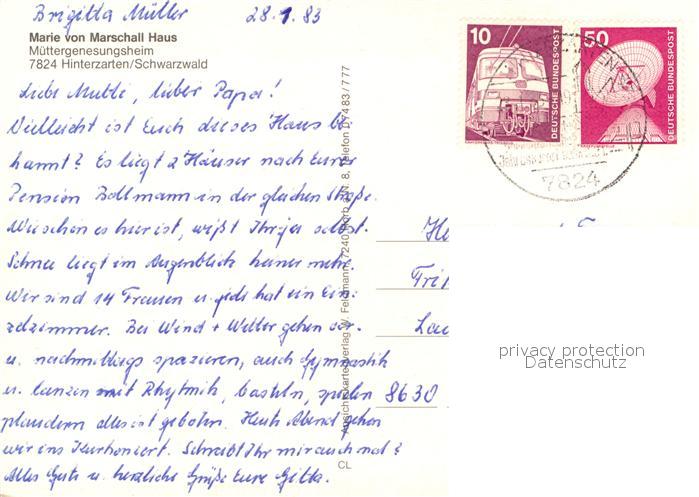 Brigitta Müller 28.1.83
Marie von Marschall Haus
Müttergenesungsheim
7824 Hinterzarten/Schwarzwald
Liebe Mutti, lieber Papa!
Vielleicht ist Euch dieses Haus be-
kannt? Es liegt 2 Häuser nach Eurer
Pension Bollmann in der gleichen Straße.
Wie schön es hier ist, wißt Ihr ja selbst.
Schnee liegt im Augenblick keiner mehr.
Wir sind 14 Frauen u. jede hat ein Ein-
zelzimmer. Bei Wind + Wetter gehen vor-
u. nachmittags spazieren, auch Gymnastik
u. tanzen mit Rhytmik, basteln, spielen
plaudern alles ist geboten. Heute Abend gehen
wir ins Kurkonzert. Schreibt Ihr mir auch mal?
Alles Gute u. herzliche Grüße Eure Gitta.
CL
Ansichtskartenverlag W. Feldmann, 7240 Horb a. N. 8, Telefon 07483/777
10
DEUTSCHE BUNDESPOST
50
DEUTSCHE BUNDESPOST
7824
8630
privacy protection
Datenschutz